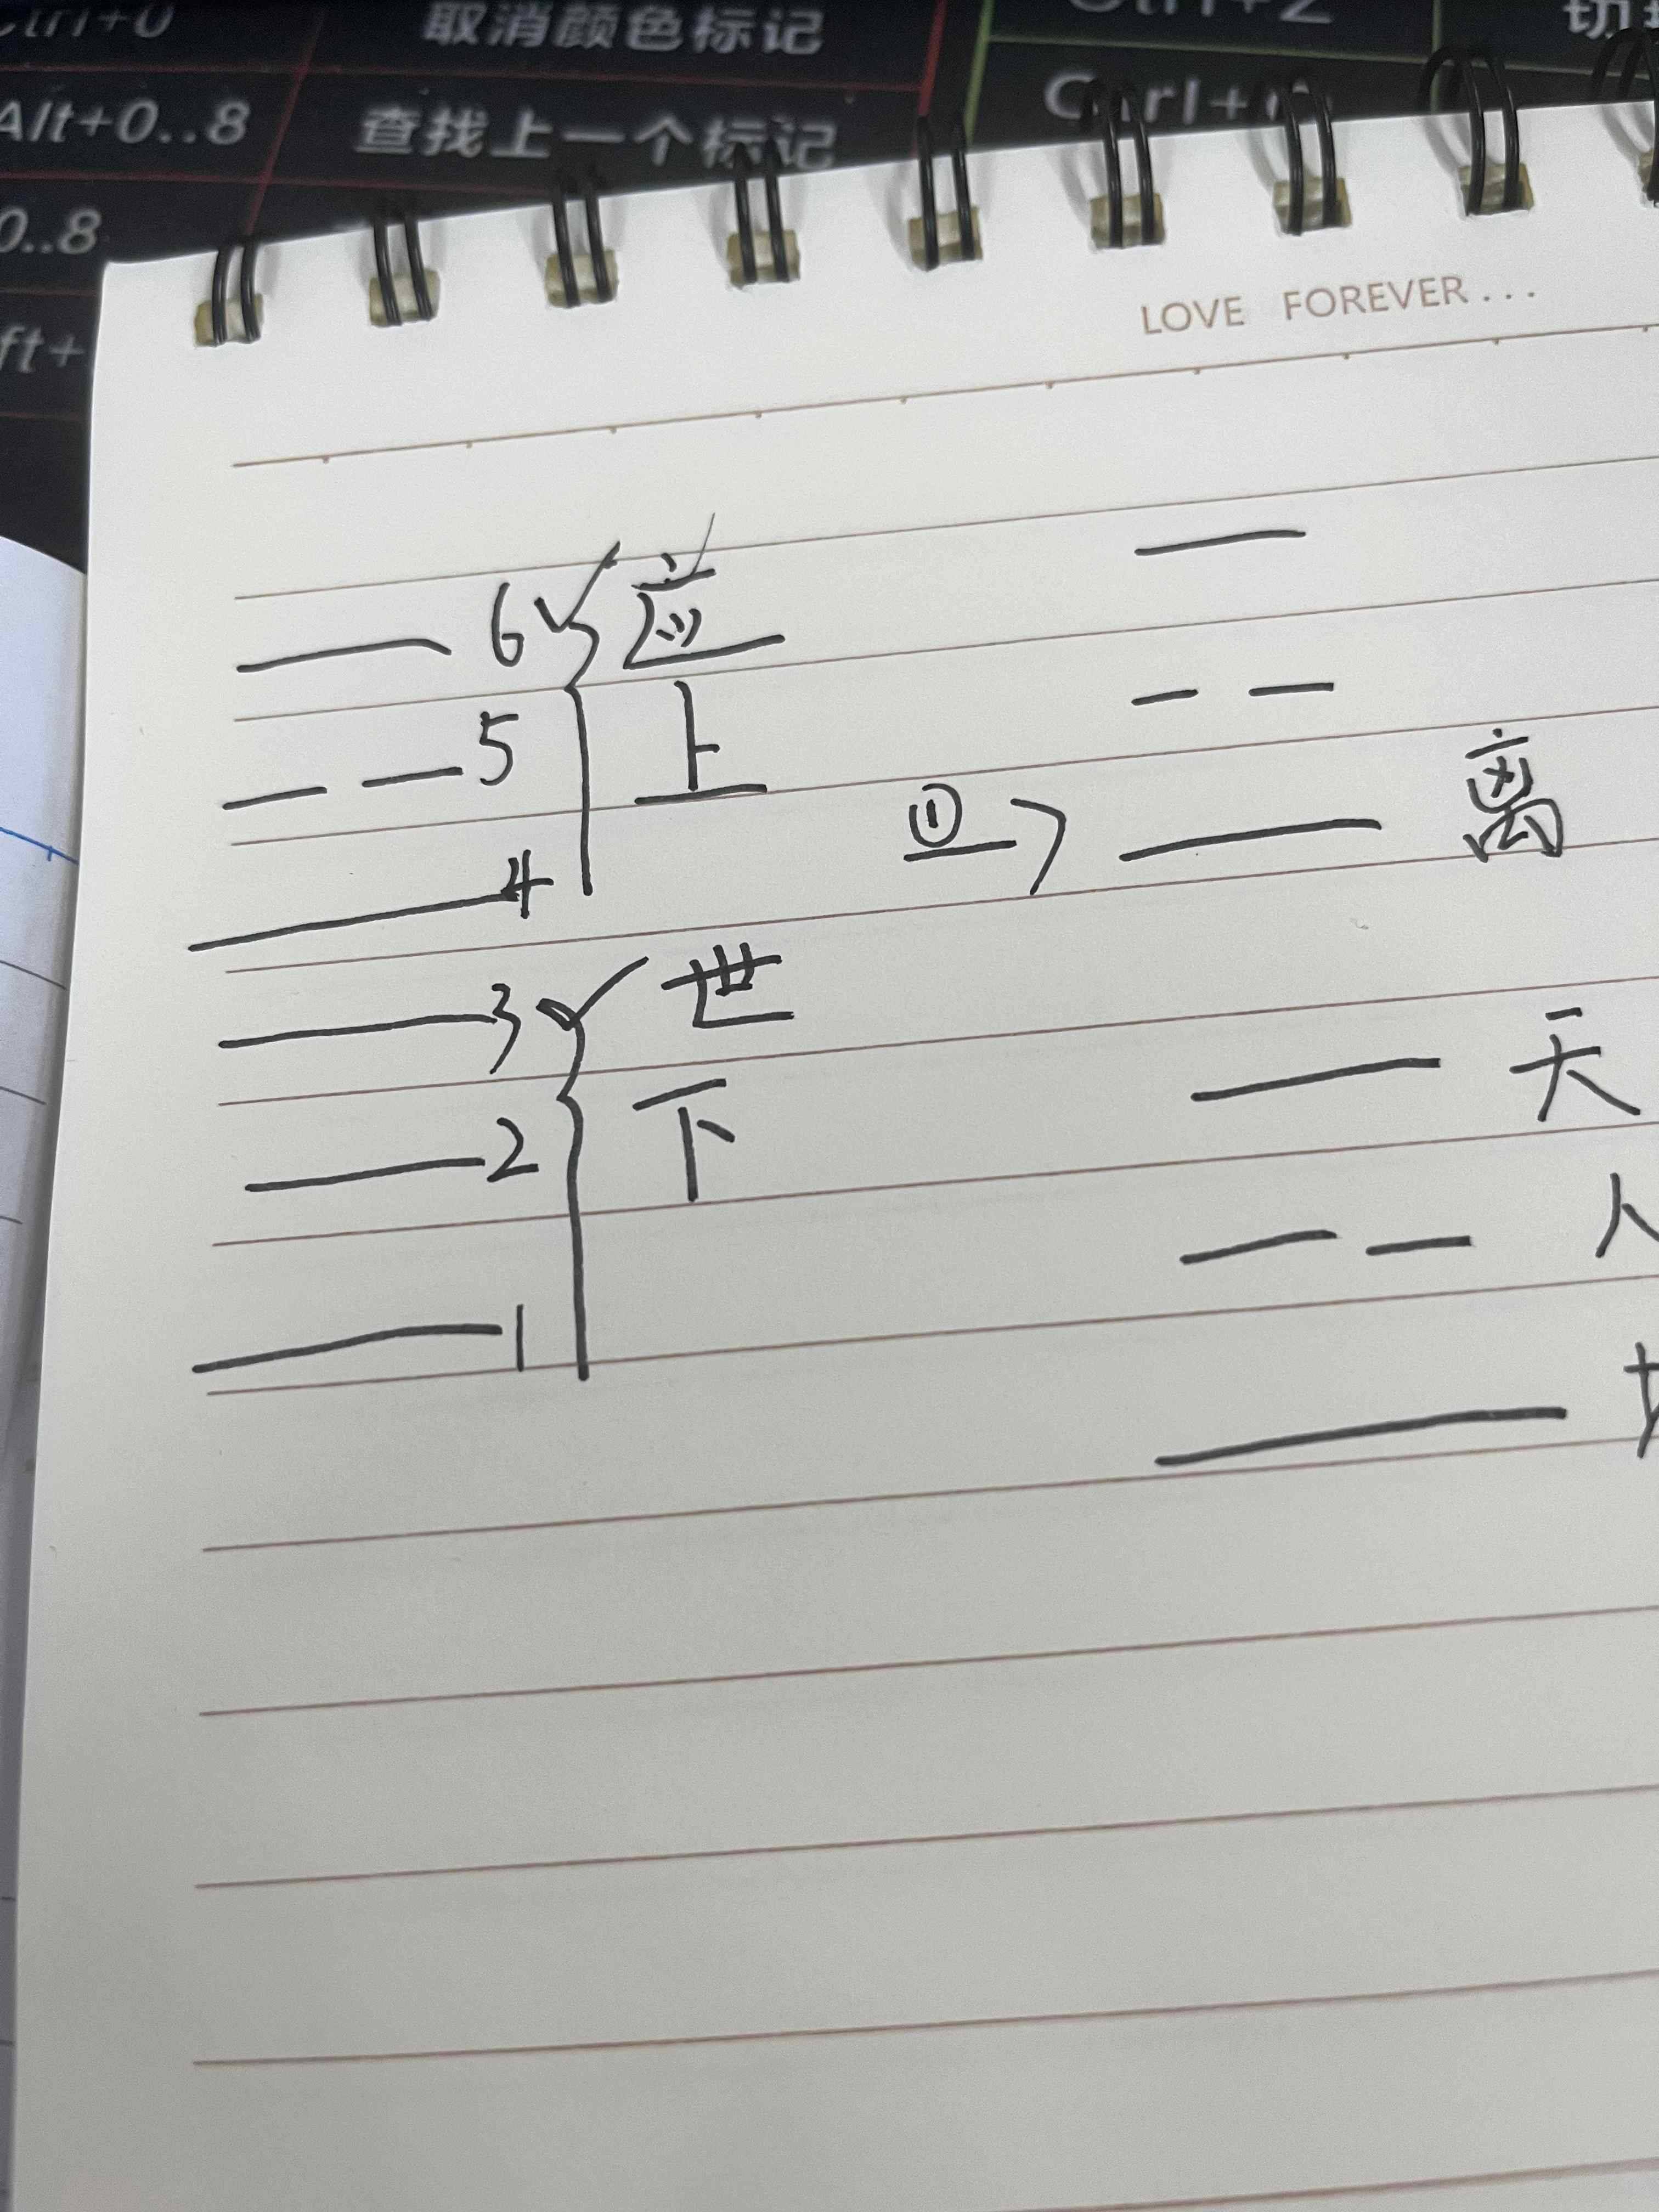 取消颜色标记
Alt+0..8 查找上一个标记
0..8
LOVE FOREVER...
6 应
5 上
4
① 离
3 世
天
2 下
人
1